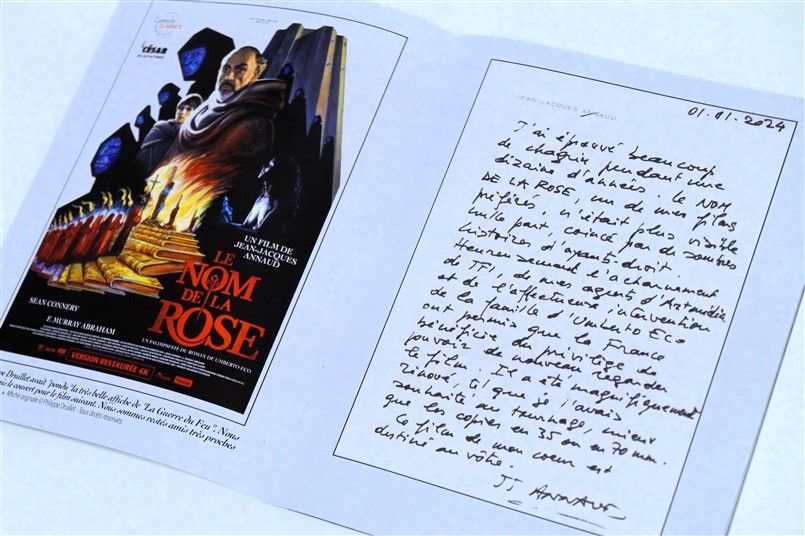 CLASSICS
CÉSAR
UN FILM DE
JEAN-JACQUES
ANNAUD
LE
NOM
DE LA
ROSE
SEAN CONNERY
F. MURRAY ABRAHAM
UN PALIMPSESTE DU ROMAN DE UMBERTO ECO
VERSION RESTAURÉE 4K
pe Druillet avait 'pondu' la très belle affiche de "La Guerre du Feu". Nous
is le couvert pour le film suivant. Nous sommes restés amis très proches
Affiche originale © Philippe Druillet - Tous droits réservés
JEAN-JACQUES ANNAUD
01.01.2024
J'ai éprouvé beaucoup
de chagrin pendant une
dizaine d'années. Le NOM
DE LA ROSE, un de mes films
préférés, n'était plus visible
nulle part, coincé par de sombres
histoires d'ayant-droit.
Heureusement l'acharnement
de TF1, de mes agents d'Artmédia
et de l'affectueuse intervention
de la famille d'Umberto Eco
ont permis que la France
bénéficie du privilège de
pouvoir de nouveau regarder
le film. Il a été magnifiquement
rénové, tel que je l'avais
souhaité au tournage, mieux
que les copies en 35 ou en 70 mm.
Ce film de mon coeur est
destiné au vôtre.
JJ ANNAUD